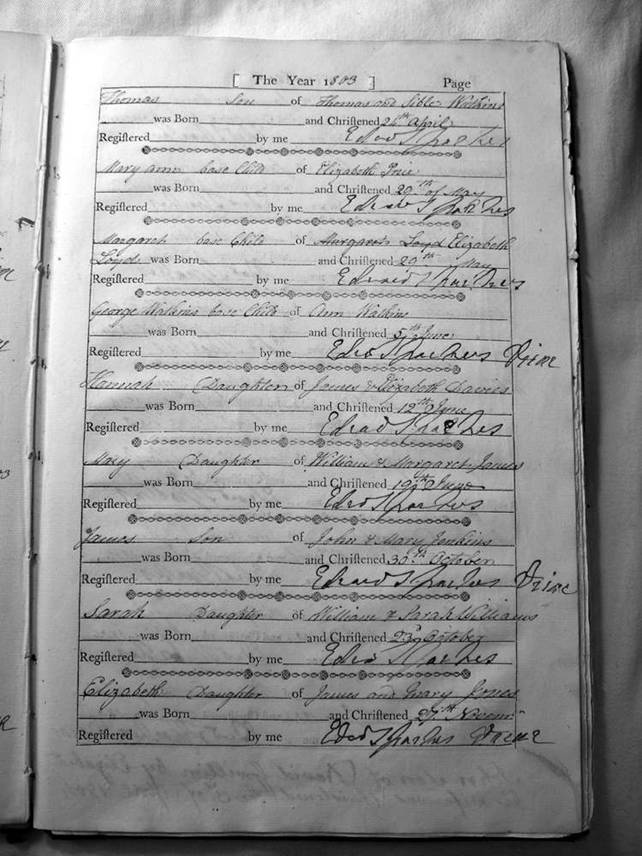 [ The Year 1803 ] Page
Thomas Son of Thomas and Sible Watkins
was Born and Chriſtened 24th April
Regiſtered by me Edwd Sparkes
Mary ann base Child of Elizabeth Price
was Born and Chriſtened 20th of May
Regiſtered by me Edwd Sparkes
Margaret base Child of Margaret Loyd Elizabeth
Loyd was Born and Chriſtened 20th May
Regiſtered by me Edward Sparkes
George Watkins base Child of Ann Watkins
was Born and Chriſtened 5th June
Regiſtered by me Edwd Sparkes
Hannah Daughter of James & Elizabeth Davies
was Born and Chriſtened 12th June
Regiſtered by me Edwad Sparkes
Mary Daughter of William & Margaret James
was Born and Chriſtened 19th
Regiſtered by me Edwd Sparkes
James Son of John & Mary Jenkins
was Born and Chriſtened 30th October
Regiſtered by me Edward Sparkes
Sarah Daughter of William & Sarah Williams
was Born and Chriſtened 23d October
Regiſtered by me Edwd Sparkes
Elizabeth Daughter of James and Mary Jones
was Born and Chriſtened 27th Novem
Regiſtered by me Edwd Sparkes